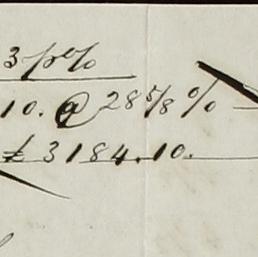 3 p%
10. @ 28 5/8 %
£ 3184.10.